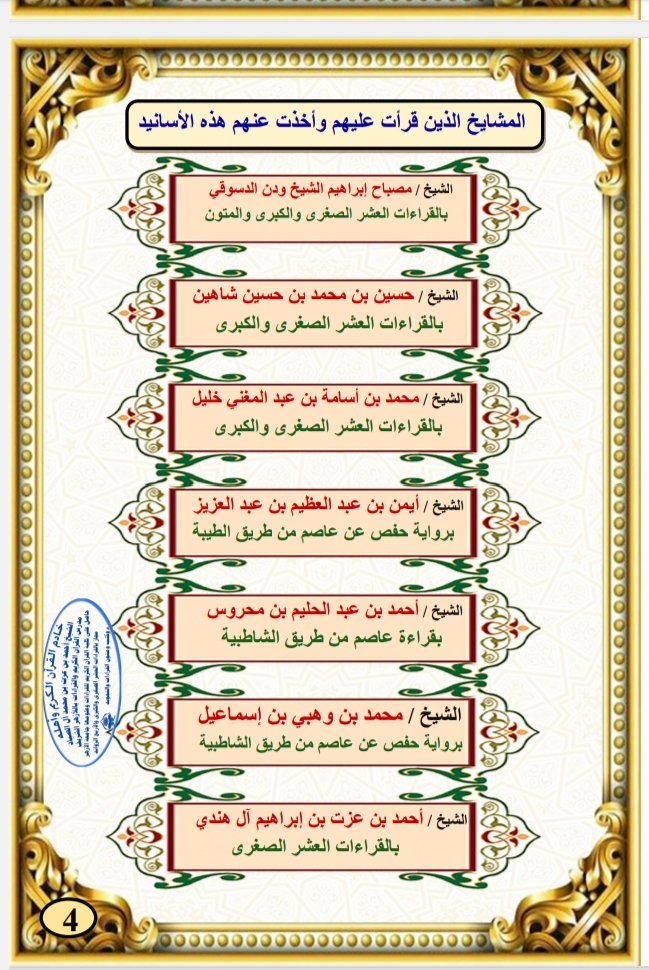 المشايخ الذين قرأت عليهم وأخذت عنهم هذه الأسانيد
الشيخ / مصباح إبراهيم الشيخ ودن الدسوقي
بالقراءات العشر الصغرى والكبرى والمتون
الشيخ / حسين بن محمد بن حسين شاهين
بالقراءات العشر الصغرى والكبرى
الشيخ / محمد بن أسامة بن عبد المغني خليل
بالقراءات العشر الصغرى والكبرى
الشيخ / أيمن بن عبد العظيم بن عبد العزيز
برواية حفص عن عاصم من طريق الطيبة
الشيخ / أحمد بن عبد الحليم بن محروس
بقراءة عاصم من طريق الشاطبية
الشيخ / محمد بن وهبي بن إسماعيل
برواية حفص عن عاصم من طريق الشاطبية
الشيخ / أحمد بن عزت بن إبراهيم آل هندي
بالقراءات العشر الصغرى
خادم القرآن الكريم وأهله
4